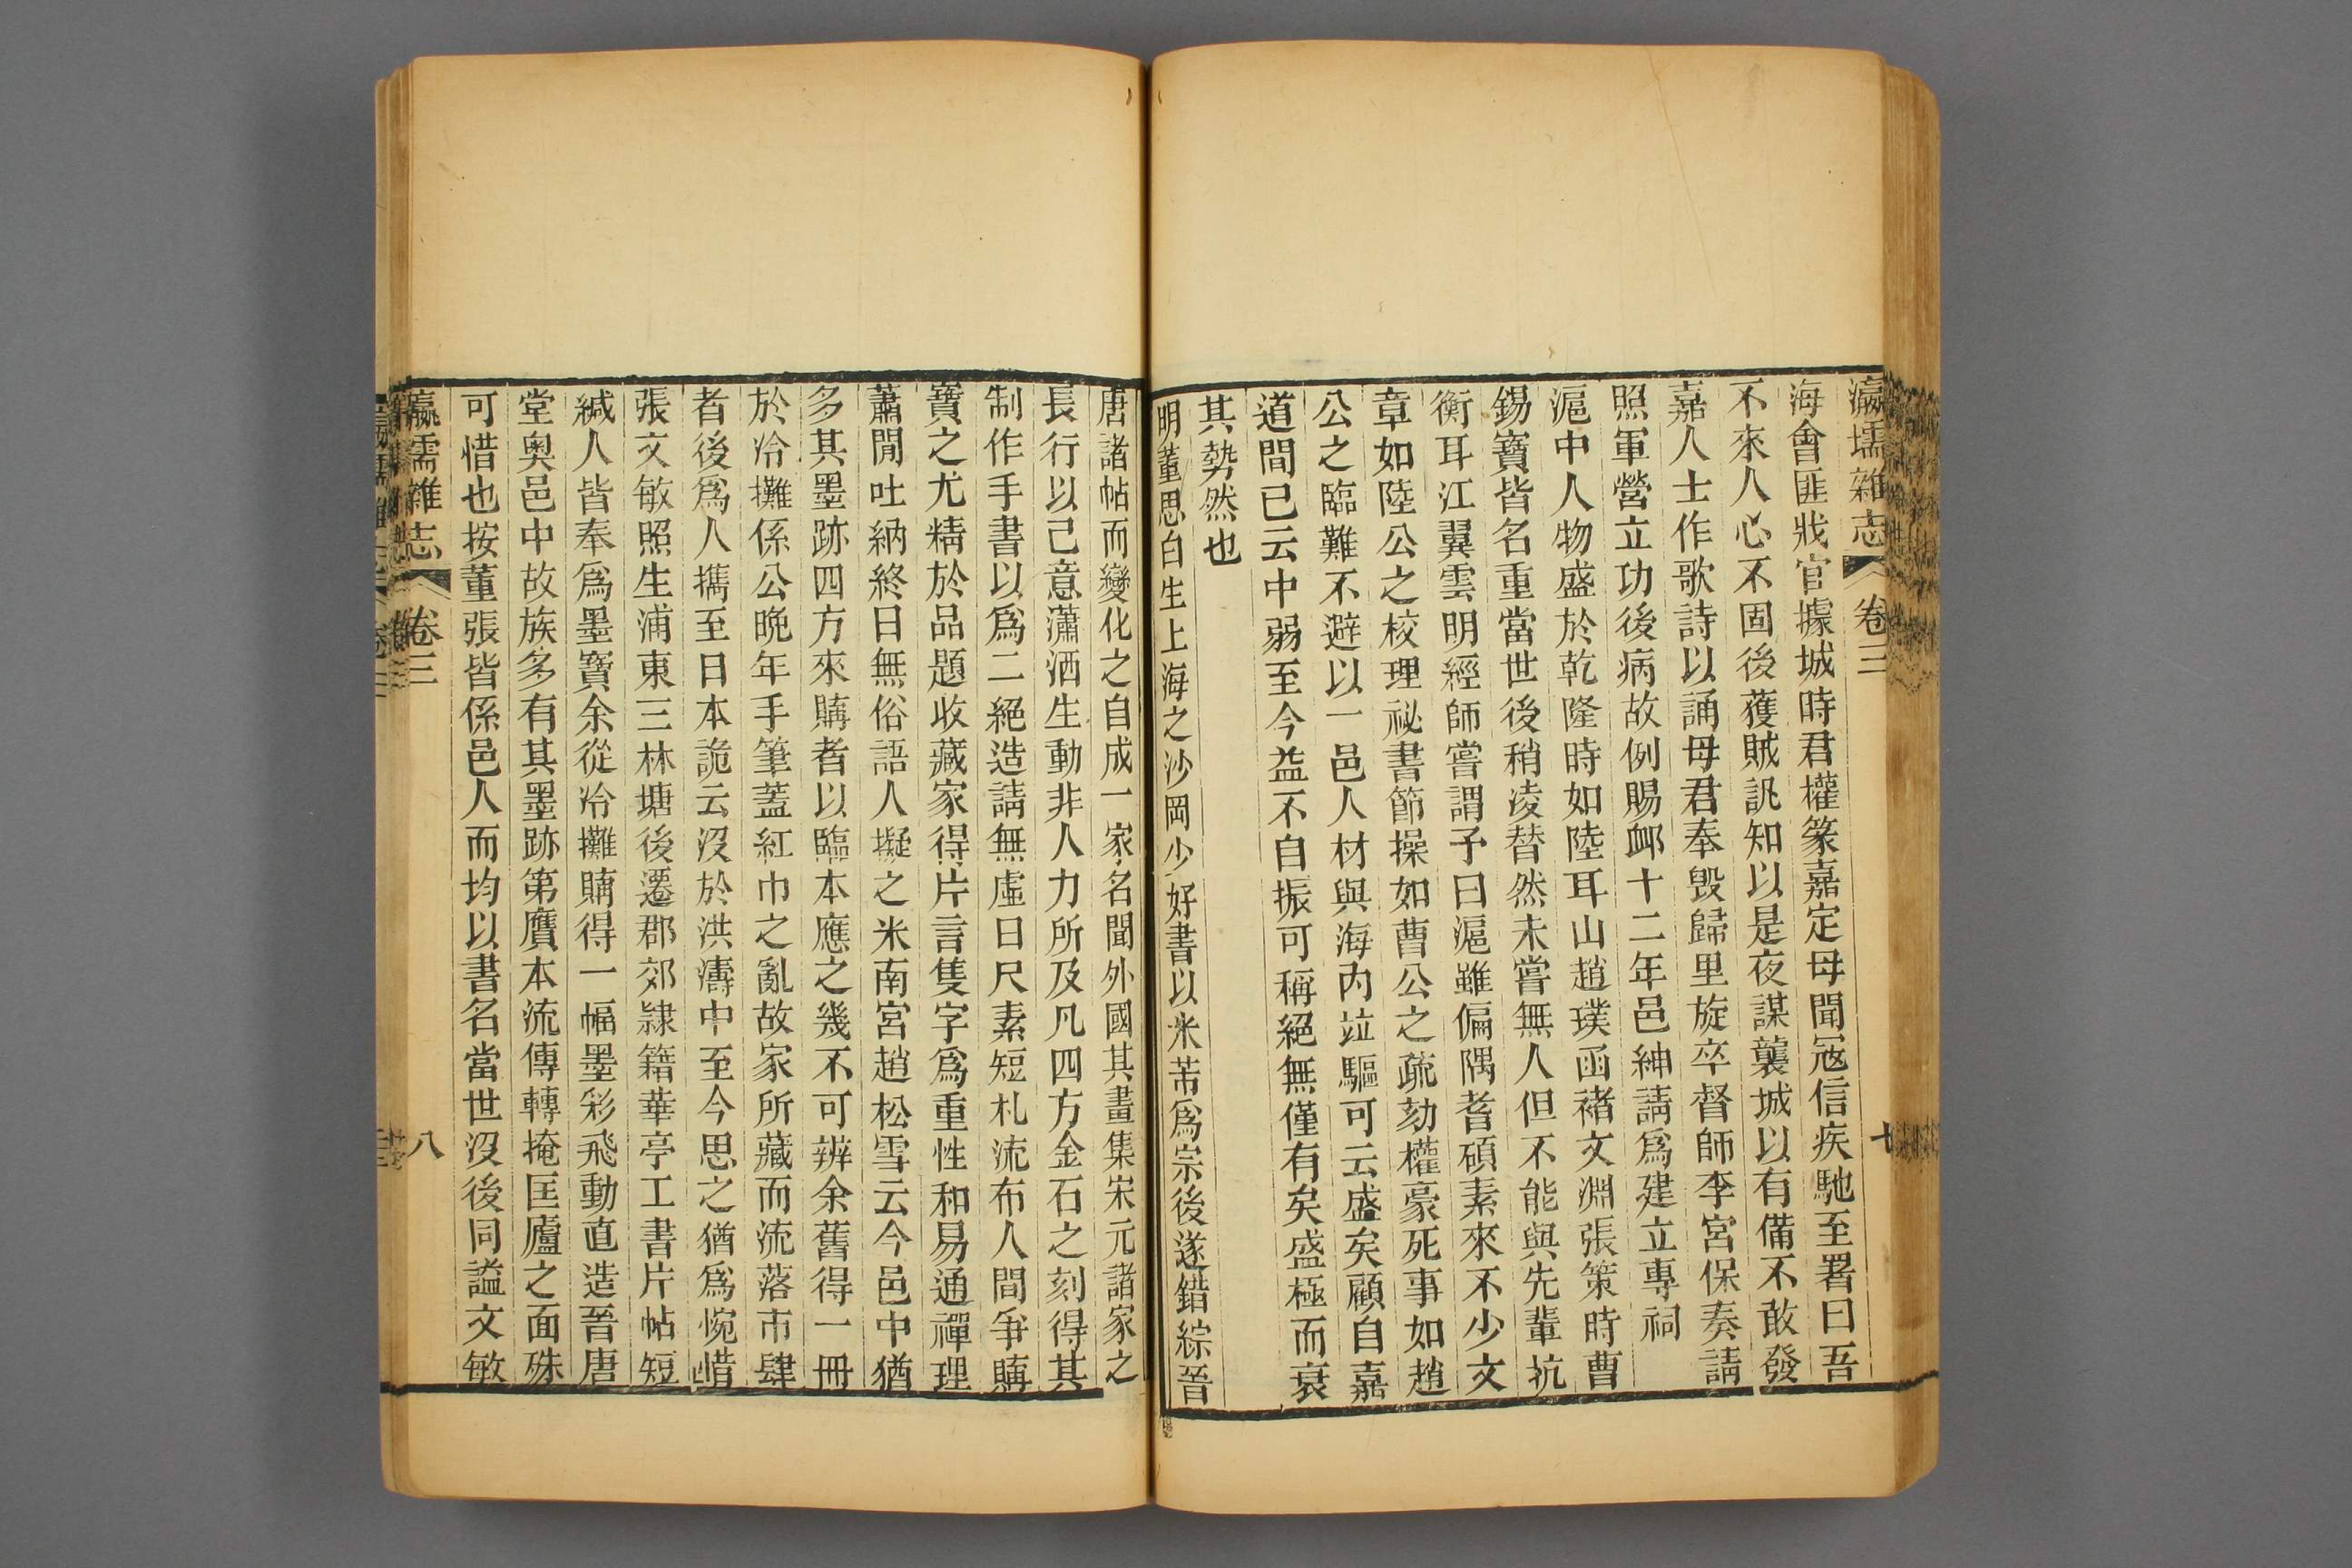 瀛壖雜志 卷三 七
海會匪戕官據城時君權篆嘉定母聞寇信疾馳至署曰吾
不來人心不固後獲賊訊知以是夜謀襲城以有備不敢發
嘉人士作歌詩以誦母君奉毀歸里旋卒督師李宮保奏請
照軍營立功後病故例賜衈十二年邑紳請爲建立專祠
滬中人物盛於乾隆時如陸耳山趙璞函褚文淵張策時曹
錫寶皆名重當世後稍凌替然未嘗無人但不能與先輩抗
衡耳江翼雲明經師嘗謂予曰滬雖偏隅耆碩素來不少文
章如陸公之校理祕書節操如曹公之疏劾權豪死事如趙
公之臨難不避以一邑人材與海內竝驅可云盛矣顧自嘉
道間已云中弱至今益不自振可稱絕無僅有矣盛極而衰
其勢然也
明董思白生上海之沙岡少好書以米芾爲宗後遂錯綜晉
唐諸帖而變化之自成一家名聞外國其畫集宋元諸家之
長行以己意瀟洒生動非人力所及凡四方金石之刻得其
制作手書以爲二絕造請無虛日尺素短札流布人間爭購
寶之尤精於品題收藏家得片言隻字爲重性和易通禪理
蕭閒吐納終日無俗語人擬之米南宮趙松雪云今邑中猶
多其墨跡四方來購者以臨本應之幾不可辨余舊得一冊
於冷攤係公晚年手筆蓋紅巾之亂故家所藏而流落市肆
者後爲人攜至日本詭云沒於洪濤中至今思之猶爲惋惜
張文敏照生浦東三林塘後遷郡郊隷籍華亭工書片帖短
緘人皆奉爲墨寶余從冷攤購得一幅墨彩飛動直造晉唐
堂奧邑中故族多有其墨跡第贋本流傳轉掩匡廬之面殊
可惜也按董張皆係邑人而均以書名當世沒後同謚文敏
瀛壖雜志 卷三 八